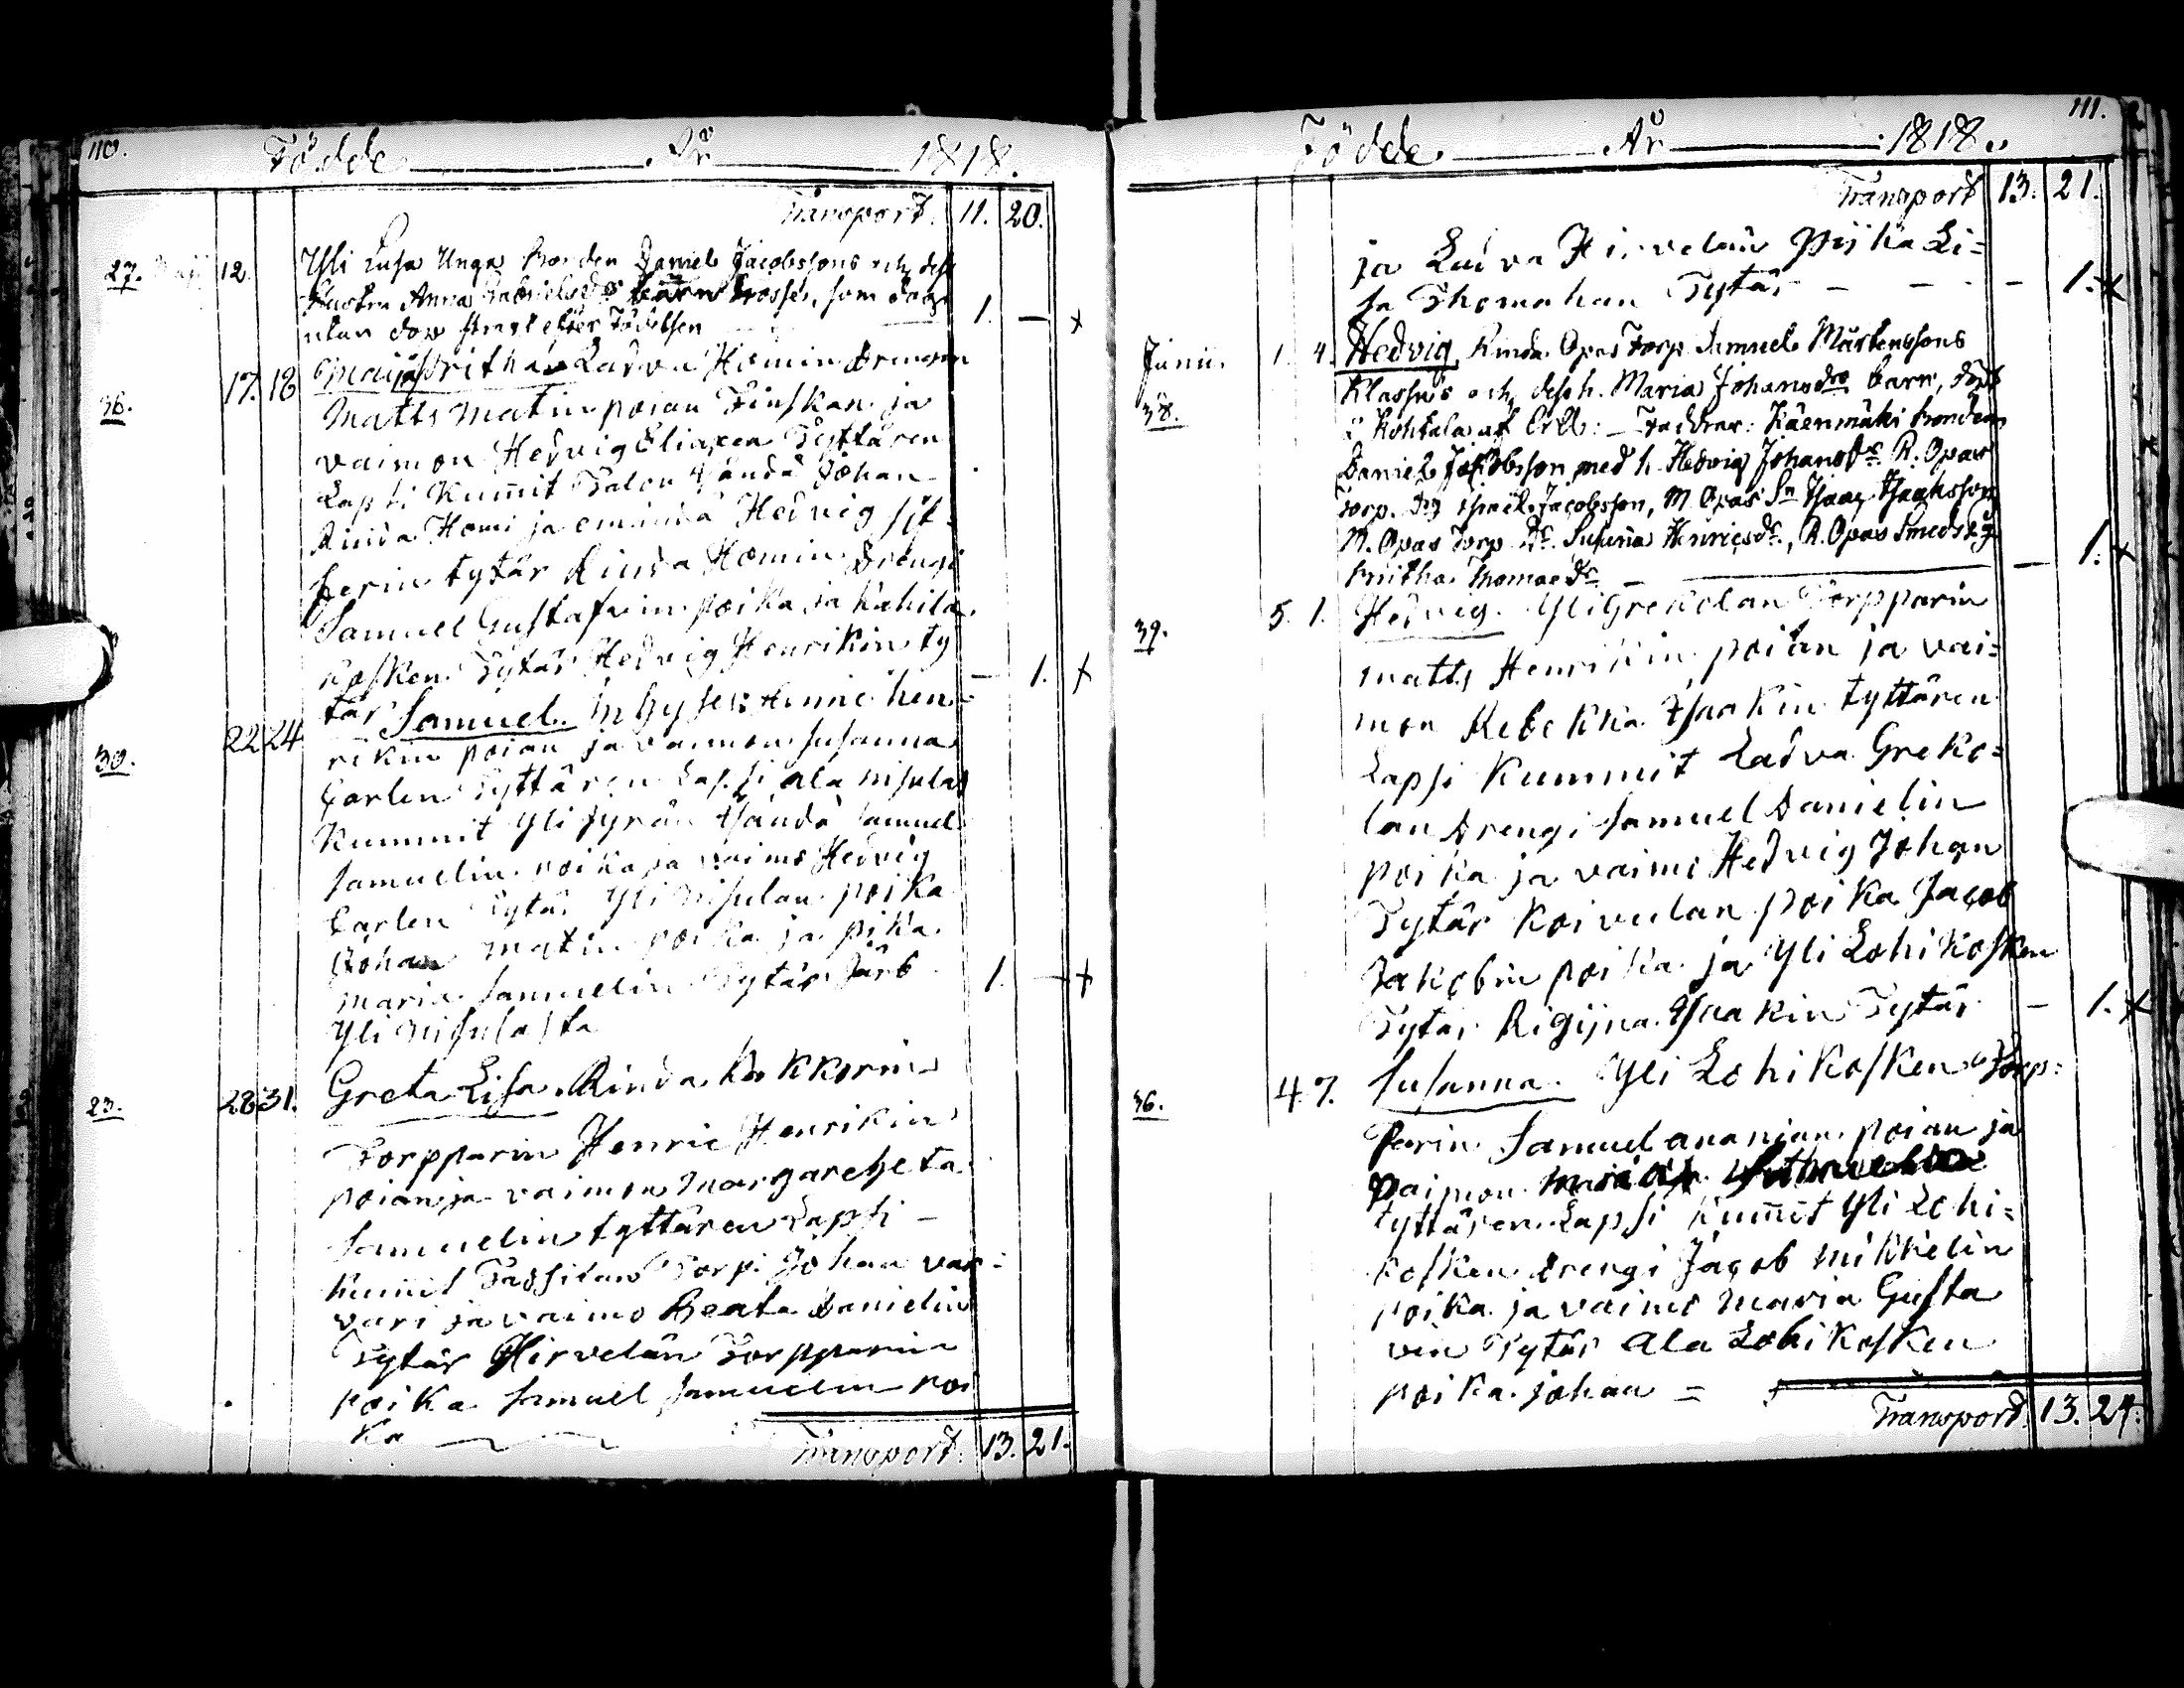 110.
Födde År 1818.
Transport. 11. 20.
27. Maji 12. Yli Lusa Unga bonden Daniel Jacobssons och dess
Hustru Anna Gabrielsdr barn gosse, som dog
utan dop strast efter Födelsen 1. — x
36. 17. 18 Maija Britha Ladva Homin drengin
Matts Matin poian Finskan ja
vaimon Hedvig Eliaxen Tyttären
Lapsi Kummit Talon Isändä Johan
Rinda Homi ja emändä Hedvig
tytär Rinda Homin Drengi
Samuel Gustafvin poika ja Kahila
kosken Tytär Hedvig Henrikin ty
tär — 1. x
30. 22 24 Samuel. Henric hen=
rikin poian ja vaimon Susanna
Carlen Tyttären Lapsi ala nisulas
Kummit Yli Jyrän Isändä Samuel
Samuelin poika ja vaimo Hedvig
Carlen Tytär Yli Nisulan poika
Johan Matin poika ja pika
Maria Samuelin Tytär 1. — x
Yli Nisulasta
23. 28 31. Greta Lisa. Rinda Kokkorin
Torpparin Henric Henrikin
poian ja vaimon Margaretheta
Samuelin tyttären Lapsi —
kummit Passilan Torp. Johan var=
vari ja vaimo Beata Danielin
Tytär Hirvelän Torpparin
poika Samuel Samuelin poi
ka
Transport. 13. 21.
111.
Födde År 1818.
Transport 13. 21.
ja Ladva Hirvelän Pijka Li=
sa Thomahan Tytär — — — 1. x
Junii. 1. 4. Hedvig, Rinda Opas Torp. Samuel Mårtenssons
38. Klassus och dess h. Maria Johansdrs barn, döpt
i Kohtala af : — Faddrar: Käenmäki bonden
Daniel Jakobsson med h. Hedvig Johansdr. R. Opas
Torp. Israel Jacobsson, M. Opas Sn Isaac Isaaksson,
M. Opas Torp. Dr. Susanna Henricsdr., R. Opas
Britha Thomaedr. — 1. x
39. 5. 1. Hedvig. Yli Grekolan Torpparin
Matts Henrikin poian ja vai=
mon Rebekka Isaakin tyttären
Lapsi Kummit Ladva Greko=
lan drengi Samuel Danielin
poika ja vaimo Hedvig Johan
Tytär Koivulan poika Jacob
Jakobin poika ja Yli Lohikosken
Tytar Rigijna Isaakin Tytär — 1. x
36. 4. 7. Susanna. Yli Lohikosken Torp=
parin Samuel ananian poian ja
vaimon Maria
tyttären Lapsi Kummit Yli Lohi=
kosken drengi Jacob Mikkelin
poika ja vaimo Maria Gusta
vin Tytär Ala Lohikosken
poika johan =
Transport. 13. 24.